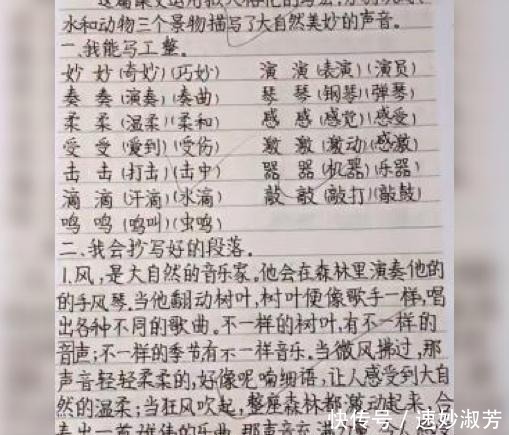 水和动物三个景物描写了大自然美妙的声音。
一、我能写工整。
妙 妙(奇妙)(巧妙) 演 演(表演)(演员)
奏 奏(演奏)(奏曲) 琴 琴(钢琴)(弹琴)
柔 柔(温柔)(柔和) 感 感(感觉)(感受)
受 受(受到)(受伤) 激 激(激动)(感激)
击 击(打击)(击中) 器 器(机器)(乐器)
滴 滴(汗滴)(水滴) 敲 敲(敲打)(敲鼓)
鸣 鸣(鸣叫)(虫鸣)
二、我会抄写好的段落。
1.风,是大自然的音乐家。他会在森林里演奏他的
的手风琴。当他翻动树叶,树叶便像歌手一样,唱
出各种不同的歌曲。不一样的树叶,有不一样的
声;不一样的季节有不一样音乐。当微风拂过,那
声音轻轻柔柔的,好像呢喃细语,让人感受到大自
然的温柔;当狂风吹起,整座森林都激动起来,合
奏出一首雄伟的乐曲,那声音充满
快传号 / 速妙淑芳